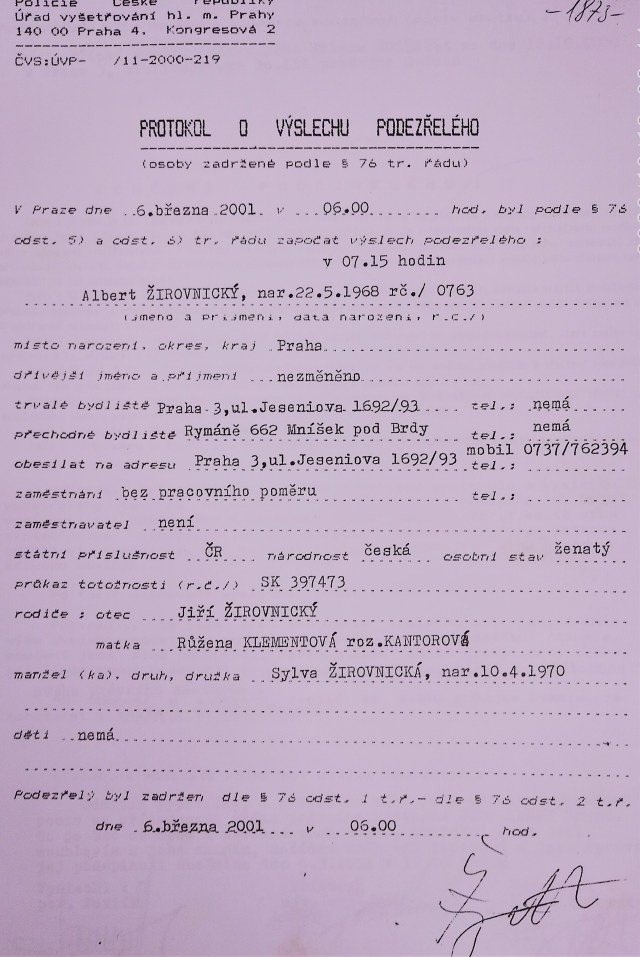 Policie České republiky
Úřad vyšetřování hl. m. Prahy
140 00 Praha 4, Kongresová 2
ČVS:ÚVP- /11-2000-219
-1873-
PROTOKOL O VÝSLECHU PODEZŘELÉHO
(osoby zadržené podle § 76 tr. řádu)
V Praze dne 6.března 2001 v 06.00 hod. byl podle § 76
odst. 5) a odst. 6) tr. řádu započat výslech podezřelého :
v 07.15 hodin
Albert ŽIROVNICKÝ, nar.22.5.1968 rč./ 0763
(jméno a příjmení, data narození, r.č./)
místo narození, okres, kraj Praha
dřívější jméno a příjmení nezměněno
trvalé bydliště Praha 3,ul.Jeseniova 1692/93 tel.: nemá
přechodné bydliště Rymáně 662 Mníšek pod Brdy tel.: nemá
obesílat na adresu Praha 3,ul.Jeseniova 1692/93 tel.: mobil 0737/762394
zaměstnání bez pracovního poměru tel.:
zaměstnavatel není
státní příslušnost ČR národnost česká osobní stav ženatý
průkaz totožnosti (r.č./) SK 397473
rodiče : otec Jiří ŽIROVNICKÝ
matka Růžena KLEMENTOVÁ roz.KANTOROVÁ
manžel (ka), druh, družka Sylva ŽIROVNICKÁ, nar.10.4.1970
děti nemá
Podezřelý byl zadržen dle § 76 odst. 1 t.ř.- dle § 76 odst. 2 t.ř.
dne 6.března 2001 v 06.00 hod.